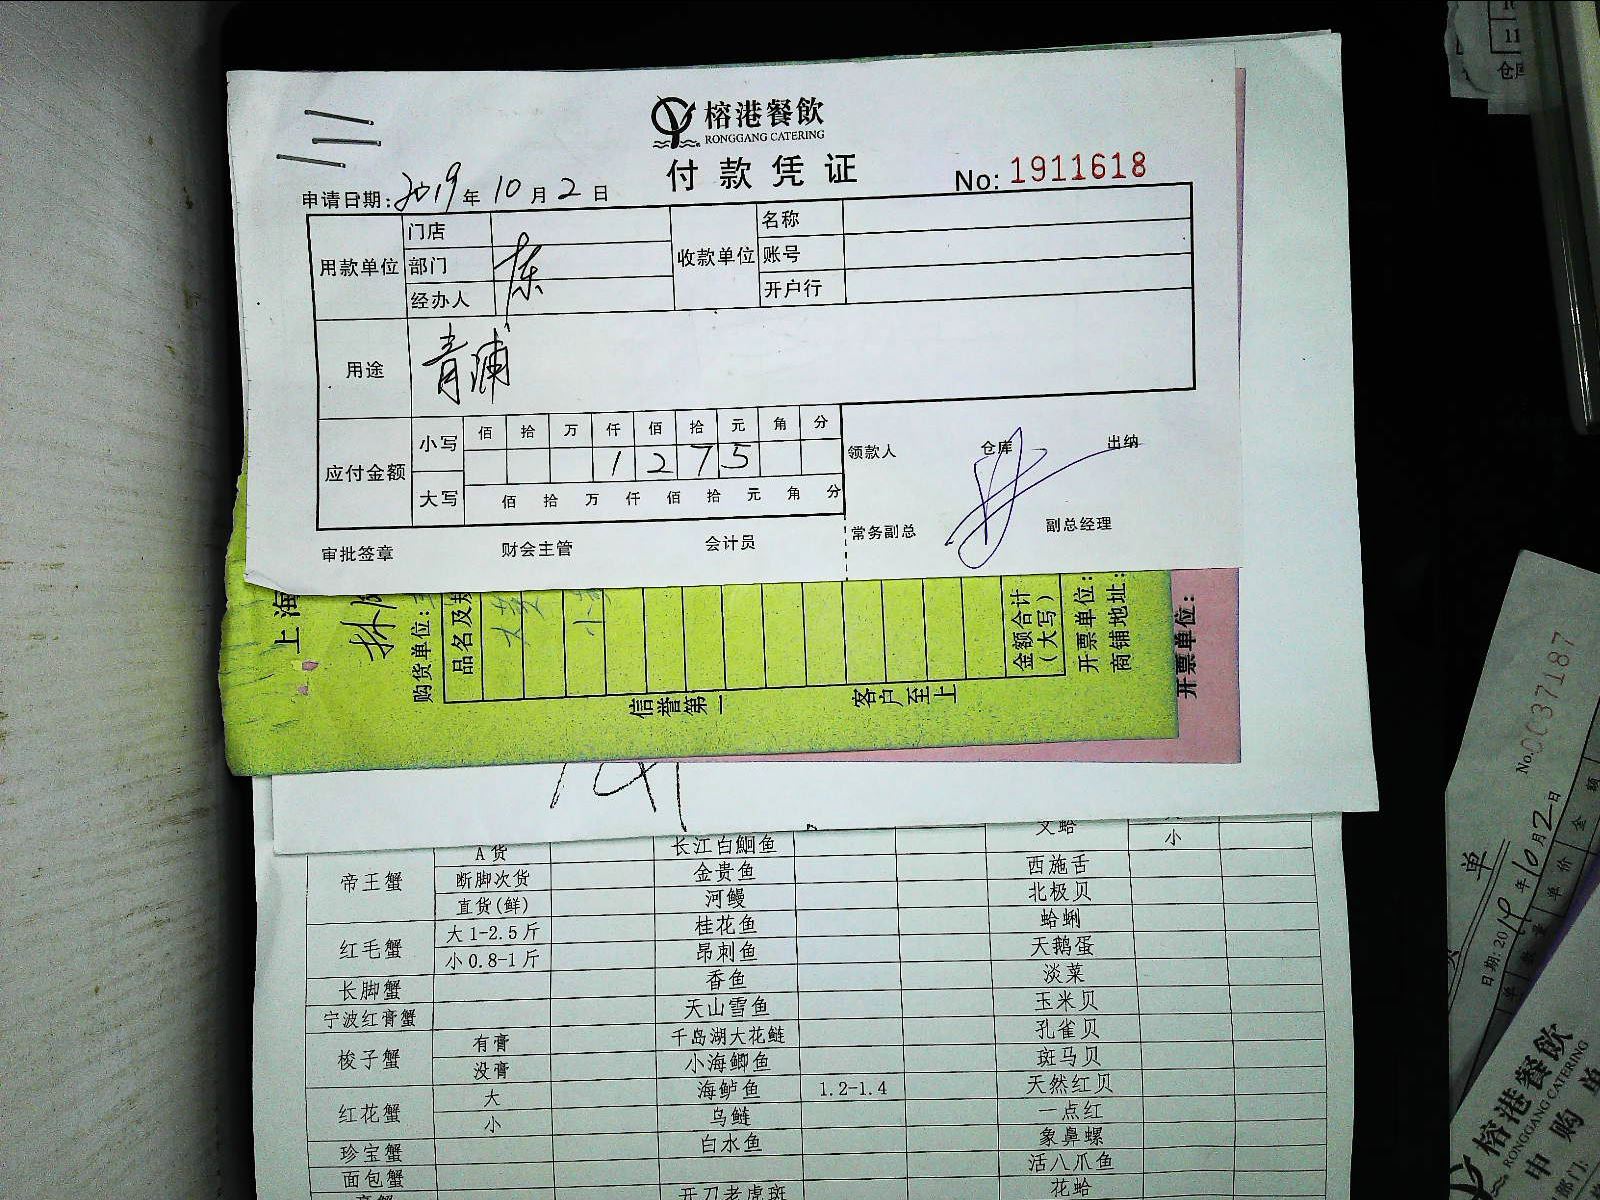 榕港餐飲
RONGGANG CATERING
付款凭证
No: 1911618
申请日期: 2019 年 10 月 2 日
用款单位 门店 收款单位 名称
部门 账号
经办人 开户行
用途 青浦
应付金额 小写 佰 拾 万 仟 佰 拾 元 角 分
1 2 7 5
大写 佰 拾 万 仟 佰 拾 元 角 分
领款人 仓库 出纳
常务副总 副总经理
审批签章 财会主管 会计员
上海
购货单位:
品名及规
金额合计
(大写)
开票单位:
商铺地址:
信誉第一 客户至上
开票单位:
A货 长江白鮰鱼 文蛤 小
帝王蟹 断脚次货 金贵鱼 西施舌
直货(鲜) 河鳗 北极贝
红毛蟹 大1-2.5斤 桂花鱼 蛤蜊
小0.8-1斤 昂刺鱼 天鹅蛋
长脚蟹 香鱼 淡菜
宁波红膏蟹 天山雪鱼 玉米贝
梭子蟹 有膏 千岛湖大花鲢 孔雀贝
没膏 小海鲫鱼 斑马贝
红花蟹 大 海鲈鱼 1.2-1.4 天然红贝
小 乌鲢 一点红
珍宝蟹 白水鱼 象鼻螺
面包蟹 活八爪鱼
开刀老虎斑 花蛤
11
仓库
No.0037187
单
日期: 2019 年 10 月 2 日
单 数量 单价 金额
榕港餐飲
RONGGANG CATERING
申购单
部门: